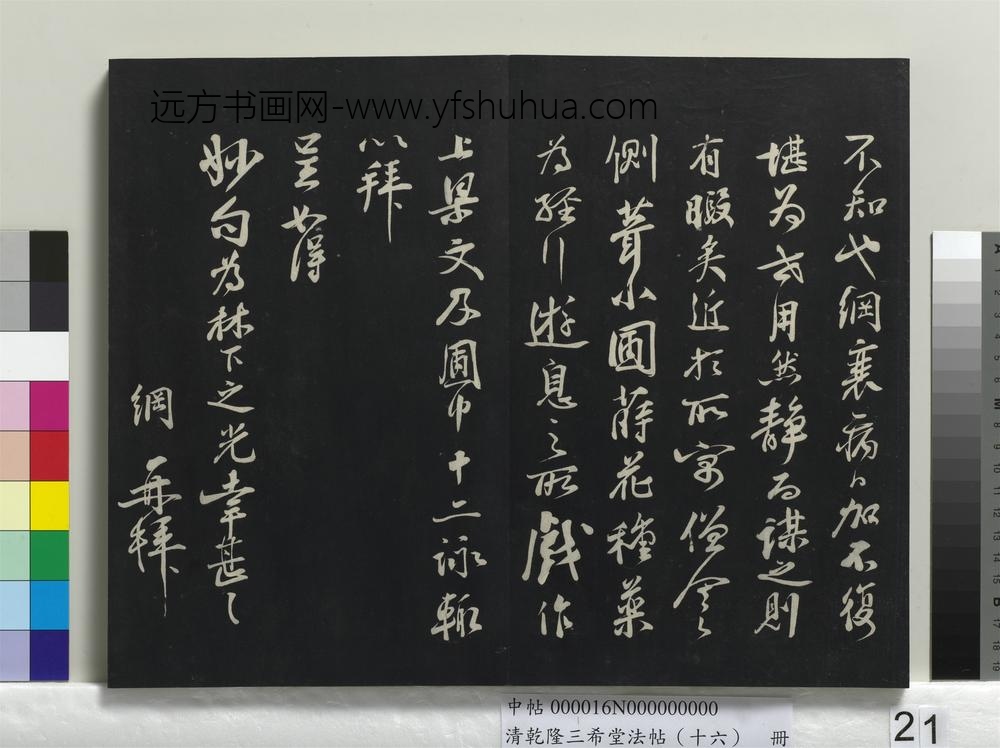 远方书画网-www.yfshuhua.com
不知也綱衰病日加不復
堪為世用然靜而謀之則
有暇矣近於所寓僧舍之
側葺小圃蒔花種藥
為經行遊息之所戲作
上梁文及圃中十二詠輒
以拜
呈如得
妙句為林下之光幸甚〻
綱 再拜
中帖 000016N000000000
清乾隆三希堂法帖（十六） 冊
21